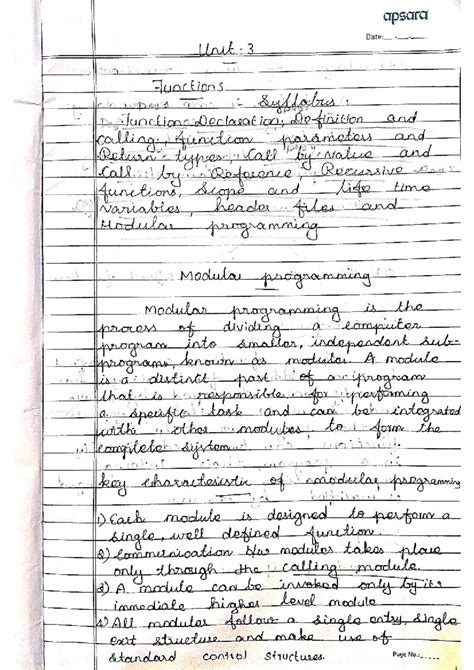 apsara
Date:
Unit : 3
Functions
Syllabus :
Function Declaration, Definition and
calling, function parameters and
Return types, Call by value and
Call by Reference, Recursive
functions, Scope and Life time
Variables, header files and
Modular programming
Modular programming
Modular programming is the
process of dividing a computer
program into smaller, independent sub-
programs, known as modules. A module
is a distinct part of a program
that is responsible for performing
a specific task and can be integrated
with other modules, to form the
complete system
key characteristic of modular programming
1) Each module is designed to perform a
single, well defined function.
2) Communication b/w modules takes place
only through the calling module.
3) A module can be invoked only by its
immediate higher level module
4) All modules follow a single entry, single
exit structure and make use of
standard control structures.
Page No.: